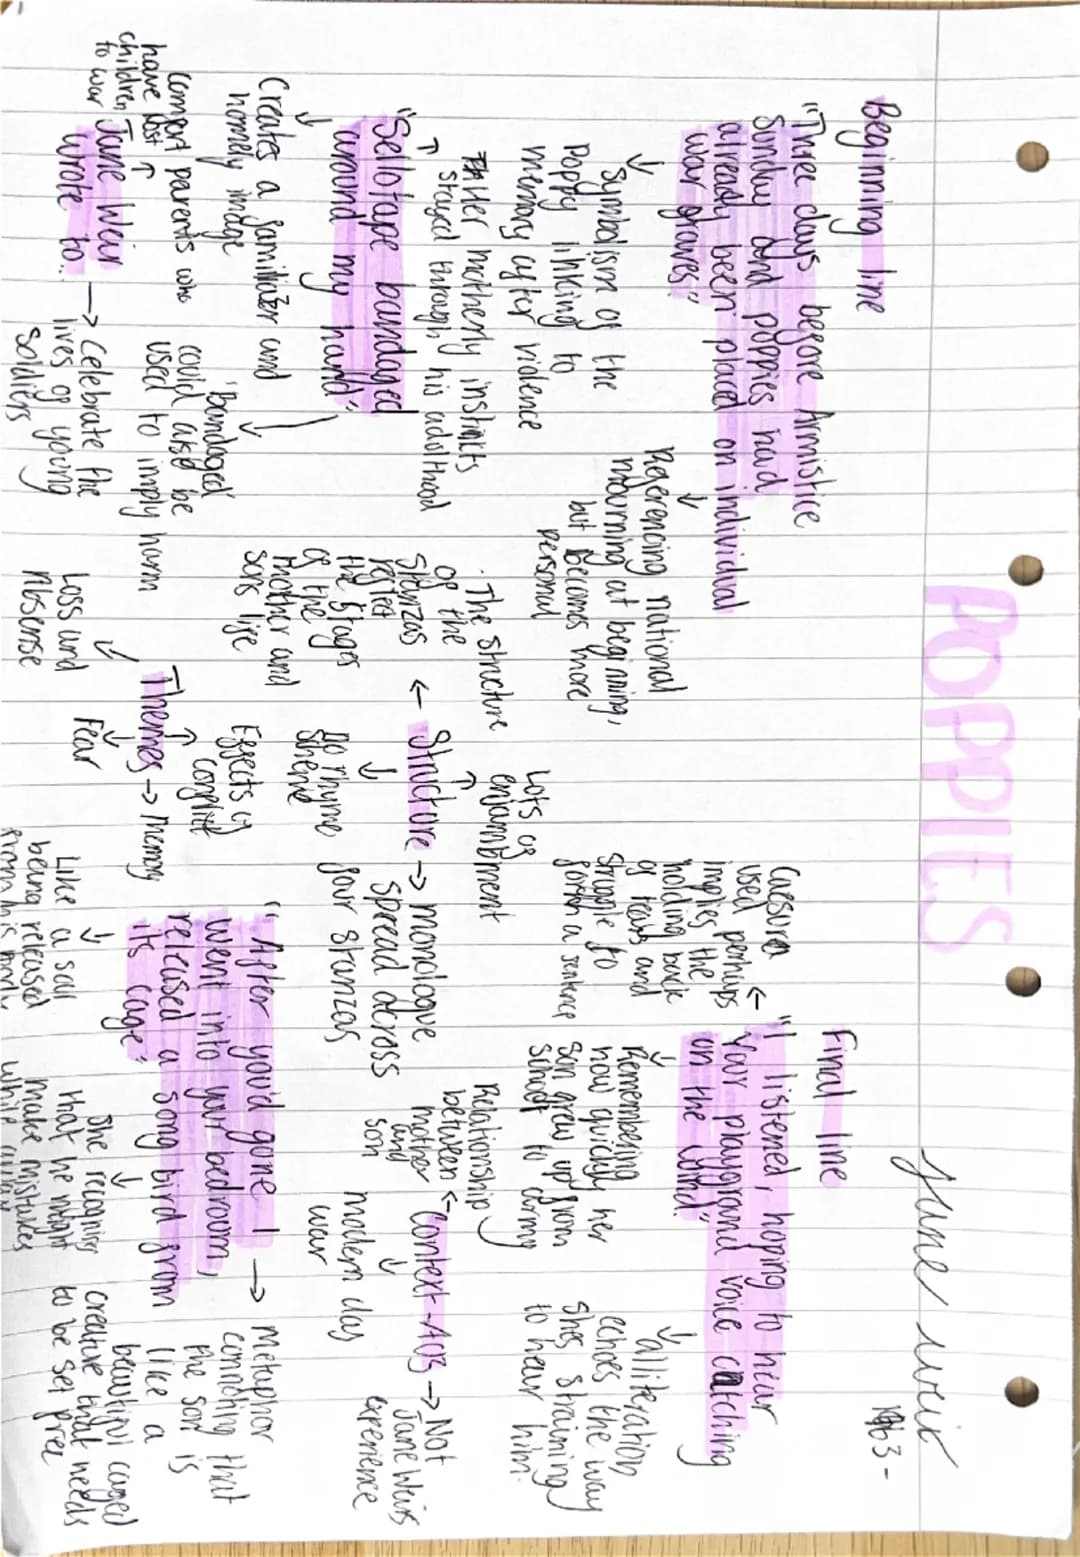 POPPIES
Jane weir
1963-
Beginning line
"Three days before Armistice
Sunday and poppies had
already been placed on individual
war graves"
↓
Symbolism of the
poppy linking to
memory after violence
↓
Referencing national
mourning at beginning,
but becomes more
personal
Final line
"I listened, hoping to hear
your playground voice catching
on the wind"
Caesura
used perhaps
implies the
holding back
of tears and
struggle to
form a sentence
↓
Remembering
how quickly her
son grew up from
school to army
↓
alliteration
echoes the way
shes straining
to hear him.
Her motherly instincts
stayed through his adulthood
↑
"Sellotape bandaged
around my hand"
↓
Creates a familiar and
homely image
↓
'Bandaged'
could also be
used to imply harm
Structure → monologue
spread across
four stanzas
↑
Lots of
enjambment
←
· The structure
of the
stanzas
reflect
the stages
of the
mother and
sons life
↓
no rhyme
sheme
Context-A03 → Not
Jane Weirs
experience
←
Relationship
between
mother
and
son
↓
modern day
war
Jane Weir
wrote to:
↑
comfort parents who
have lost
children
to war
→ celebrate the
lives of young
soldiers
Themes → memory
↑
Effects of
conflict
↓
Loss and
Absense
↓
Fear
"After you'd gone I
went into your bedroom,
released a song bird from
its cage"
→ metaphor
connoting that
the son is
like a
beautiful caged
creature that needs
to be set free
↓
Like a soul
being released
from his body
↓
She recognises
that he might
make mistakes
while